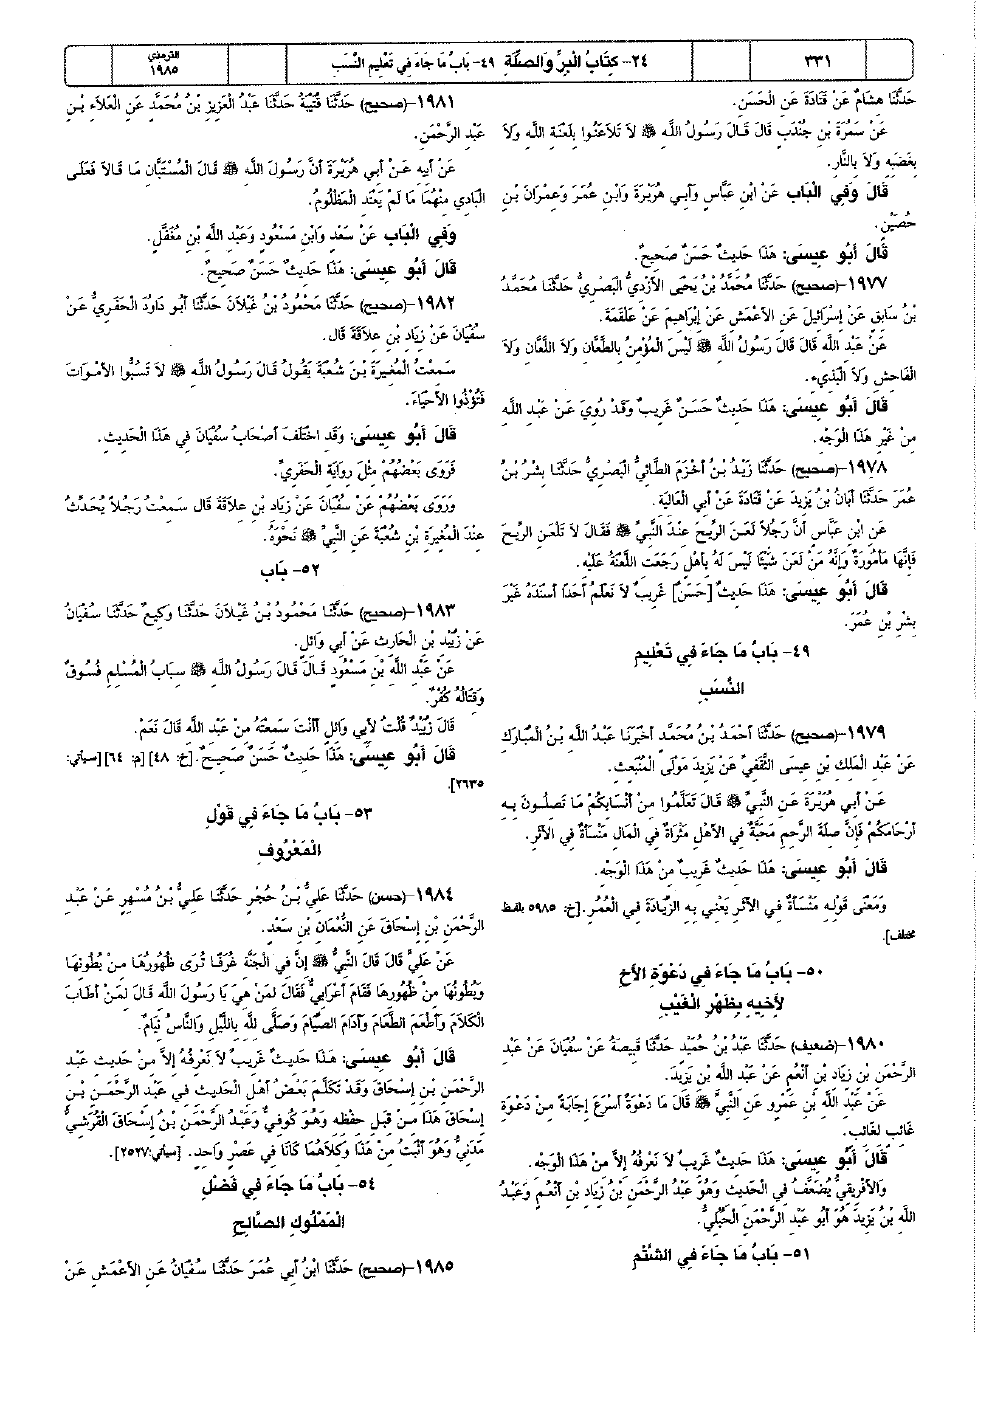 ٣٣١
٢٤- كِتَابُ الْبِرِّ وَالصِّلَةِ ٤٩- بَابُ مَا جَاءَ فِي تَعْلِيمِ النَّسَبِ
الترمذي
١٩٨٥
حَدَّثَنَا هِشَامٌ عَنْ قَتَادَةَ عَنِ الْحَسَنِ.
عَنْ سَمُرَةَ بْنِ جُنْدَبٍ قَالَ قَالَ رَسُولُ اللَّهِ ﷺ لاَ تَلاَعَنُوا بِلَعْنَةِ اللَّهِ وَلاَ
بِغَضَبِهِ وَلاَ بِالنَّارِ.
قَالَ وَفِي الْبَاب عَنْ ابْنِ عَبَّاسٍ وَأَبِي هُرَيْرَةَ وَابْنِ عُمَرَ وَعِمْرَانَ بْنِ
حُصَيْنٍ.
قَالَ أَبُو عِيسَى: هَذَا حَدِيثٌ حَسَنٌ صَحِيحٌ.
١٩٧٧-(صحيح) حَدَّثَنَا مُحَمَّدُ بْنُ يَحْيَى الأَزْدِيُّ الْبَصْرِيُّ حَدَّثَنَا مُحَمَّدُ
بْنُ سَابِقٍ عَنْ إِسْرَائِيلَ عَنِ الأَعْمَشِ عَنْ إِبْرَاهِيمَ عَنْ عَلْقَمَةَ.
عَنْ عَبْدِ اللَّهِ قَالَ قَالَ رَسُولُ اللَّهِ ﷺ لَيْسَ الْمُؤْمِنُ بِالطَّعَّانِ وَلاَ اللَّعَّانِ وَلاَ
الْفَاحِشِ وَلاَ الْبَذِيءِ.
قَالَ أَبُو عِيسَى: هَذَا حَدِيثٌ حَسَنٌ غَرِيبٌ وَقَدْ رُوِيَ عَنْ عَبْدِ اللَّهِ
مِنْ غَيْرِ هَذَا الْوَجْهِ.
١٩٧٨-(صحيح) حَدَّثَنَا زَيْدُ بْنُ أَخْزَمَ الطَّائِيُّ الْبَصْرِيُّ حَدَّثَنَا بِشْرُ بْنُ
عُمَرَ حَدَّثَنَا أَبَانُ بْنُ يَزِيدَ عَنْ قَتَادَةَ عَنْ أَبِي الْعَالِيَةِ.
عَنِ ابْنِ عَبَّاسٍ أَنَّ رَجُلاً لَعَنَ الرِّيحَ عِنْدَ النَّبِيِّ ﷺ فَقَالَ لاَ تَلْعَنِ الرِّيحَ
فَإِنَّهَا مَأْمُورَةٌ وَإِنَّهُ مَنْ لَعَنَ شَيْئًا لَيْسَ لَهُ بِأَهْلٍ رَجَعَتِ اللَّعْنَةُ عَلَيْهِ.
قَالَ أَبُو عِيسَى: هَذَا حَدِيثٌ [حَسَنٌ] غَرِيبٌ لاَ نَعْلَمُ أَحَدًا أَسْنَدَهُ غَيْرَ
بِشْرِ بْنِ عُمَرَ.
٤٩- بَابُ مَا جَاءَ فِي تَعْلِيمِ
النَّسَبِ
١٩٧٩-(صحيح) حَدَّثَنَا أَحْمَدُ بْنُ مُحَمَّدٍ أَخْبَرَنَا عَبْدُ اللَّهِ بْنُ الْمُبَارَكِ
عَنْ عَبْدِ الْمَلِكِ بْنِ عِيسَى الثَّقَفِيِّ عَنْ يَزِيدَ مَوْلَى الْمُنْبَعِثِ.
عَنْ أَبِي هُرَيْرَةَ عَنِ النَّبِيِّ ﷺ قَالَ تَعَلَّمُوا مِنْ أَنْسَابِكُمْ مَا تَصِلُونَ بِهِ
أَرْحَامَكُمْ فَإِنَّ صِلَةَ الرَّحِمِ مَحَبَّةٌ فِي الأَهْلِ مَثْرَاةٌ فِي الْمَالِ مَنْسَأَةٌ فِي الأَثَرِ.
قَالَ أَبُو عِيسَى: هَذَا حَدِيثٌ غَرِيبٌ مِنْ هَذَا الْوَجْهِ.
وَمَعْنَى قَوْلِهِ مَنْسَأَةٌ فِي الأَثَرِ يَعْنِي بِهِ الزِّيَادَةَ فِي الْعُمُرِ.[خ: ٥٩٨٥ بلفظ
مختلف].
٥٠- بَابُ مَا جَاءَ فِي دَعْوَةِ الأَخِ
لأَخِيهِ بِظَهْرِ الْغَيْبِ
١٩٨٠-(ضعيف) حَدَّثَنَا عَبْدُ بْنُ حُمَيْدٍ حَدَّثَنَا قَبِيصَةُ عَنْ سُفْيَانَ عَنْ عَبْدِ
الرَّحْمَنِ بْنِ زِيَادِ بْنِ أَنْعُمٍ عَنْ عَبْدِ اللَّهِ بْنِ يَزِيدَ.
عَنْ عَبْدِ اللَّهِ بْنِ عَمْرٍو عَنِ النَّبِيِّ ﷺ قَالَ مَا دَعْوَةٌ أَسْرَعَ إِجَابَةً مِنْ دَعْوَةِ
غَائِبٍ لِغَائِبٍ.
قَالَ أَبُو عِيسَى: هَذَا حَدِيثٌ غَرِيبٌ لاَ نَعْرِفُهُ إِلاَّ مِنْ هَذَا الْوَجْهِ.
وَالأَفْرِيقِيُّ يُضَعَّفُ فِي الْحَدِيثِ وَهُوَ عَبْدُ الرَّحْمَنِ بْنُ زِيَادِ بْنِ أَنْعُمٍ وَعَبْدُ
اللَّهِ بْنُ يَزِيدَ هُوَ أَبُو عَبْدِ الرَّحْمَنِ الْحُبُلِيُّ.
٥١- بَابُ مَا جَاءَ فِي الشَّتْمِ
١٩٨١-(صحيح) حَدَّثَنَا قُتَيْبَةُ حَدَّثَنَا عَبْدُ الْعَزِيزِ بْنُ مُحَمَّدٍ عَنِ الْعَلاَءِ بْنِ
عَبْدِ الرَّحْمَنِ.
عَنْ أَبِيهِ عَنْ أَبِي هُرَيْرَةَ أَنَّ رَسُولَ اللَّهِ ﷺ قَالَ الْمُسْتَبَّانِ مَا قَالاَ فَعَلَى
الْبَادِي مِنْهُمَا مَا لَمْ يَعْتَدِ الْمَظْلُومُ.
وَفِي الْبَاب عَنْ سَعْدٍ وَابْنِ مَسْعُودٍ وَعَبْدِ اللَّهِ بْنِ مُغَفَّلٍ.
قَالَ أَبُو عِيسَى: هَذَا حَدِيثٌ حَسَنٌ صَحِيحٌ.
١٩٨٢-(صحيح) حَدَّثَنَا مَحْمُودُ بْنُ غَيْلاَنَ حَدَّثَنَا أَبُو دَاوُدَ الْحَفَرِيُّ عَنْ
سُفْيَانَ عَنْ زِيَادِ بْنِ عِلاَقَةَ قَال.
سَمِعْتُ الْمُغِيرَةَ بْنَ شُعْبَةَ يَقُولُ قَالَ رَسُولُ اللَّهِ ﷺ لاَ تَسُبُّوا الأَمْوَاتَ
فَتُؤْذُوا الأَحْيَاءَ.
قَالَ أَبُو عِيسَى: وَقَدِ اخْتَلَفَ أَصْحَابُ سُفْيَانَ فِي هَذَا الْحَدِيثِ.
فَرَوَى بَعْضُهُمْ مِثْلَ رِوَايَةِ الْحَفَرِيِّ.
وَرَوَى بَعْضُهُمْ عَنْ سُفْيَانَ عَنْ زِيَادِ بْنِ عِلاَقَةَ قَال سَمِعْتُ رَجُلاً يُحَدِّثُ
عِنْدَ الْمُغِيرَةِ بْنِ شُعْبَةَ عَنِ النَّبِيِّ ﷺ نَحْوَهُ.
٥٢- بَاب
١٩٨٣-(صحيح) حَدَّثَنَا مَحْمُودُ بْنُ غَيْلاَنَ حَدَّثَنَا وَكِيعٌ حَدَّثَنَا سُفْيَانُ
عَنْ زُبَيْدِ بْنِ الْحَارِثِ عَنْ أَبِي وَائِلٍ.
عَنْ عَبْدِ اللَّهِ بْنِ مَسْعُودٍ قَالَ قَالَ رَسُولُ اللَّهِ ﷺ سِبَابُ الْمُسْلِمِ فُسُوقٌ
وَقِتَالُهُ كُفْرٌ.
قَالَ زُبَيْدٌ قُلْتُ لأَبِي وَائِلٍ أَأَنْتَ سَمِعْتَهُ مِنْ عَبْدِ اللَّهِ قَالَ نَعَمْ.
قَالَ أَبُو عِيسَى: هَذَا حَدِيثٌ حَسَنٌ صَحِيحٌ.[خ: ٤٨] [م: ٦٤] [سيأتي:
٢٦٣٥].
٥٣- بَابُ مَا جَاءَ فِي قَوْلِ
الْمَعْرُوفِ
١٩٨٤-(حسن) حَدَّثَنَا عَلِيُّ بْنُ حُجْرٍ حَدَّثَنَا عَلِيُّ بْنُ مُسْهِرٍ عَنْ عَبْدِ
الرَّحْمَنِ بْنِ إِسْحَاقَ عَنِ النُّعْمَانِ بْنِ سَعْدٍ.
عَنْ عَلِيٍّ قَالَ قَالَ النَّبِيُّ ﷺ إِنَّ فِي الْجَنَّةِ غُرَفًا تُرَى ظُهُورُهَا مِنْ بُطُونِهَا
وَبُطُونُهَا مِنْ ظُهُورِهَا فَقَامَ أَعْرَابِيٌّ فَقَالَ لِمَنْ هِيَ يَا رَسُولَ اللَّهِ قَالَ لِمَنْ أَطَابَ
الْكَلاَمَ وَأَطْعَمَ الطَّعَامَ وَأَدَامَ الصِّيَامَ وَصَلَّى لِلَّهِ بِاللَّيْلِ وَالنَّاسُ نِيَامٌ.
قَالَ أَبُو عِيسَى: هَذَا حَدِيثٌ غَرِيبٌ لاَ نَعْرِفُهُ إِلاَّ مِنْ حَدِيثِ عَبْدِ
الرَّحْمَنِ بْنِ إِسْحَاقَ وَقَدْ تَكَلَّمَ بَعْضُ أَهْلِ الْحَدِيثِ فِي عَبْدِ الرَّحْمَنِ بْنِ
إِسْحَاقَ هَذَا مِنْ قِبَلِ حِفْظِهِ وَهُوَ كُوفِيٌّ وَعَبْدُ الرَّحْمَنِ بْنُ إِسْحَاقَ الْقُرَشِيُّ
مَدَنِيٌّ وَهُوَ أَثْبَتُ مِنْ هَذَا وَكِلاَهُمَا كَانَا فِي عَصْرٍ وَاحِدٍ. [سيأتي:٢٥٢٧].
٥٤- بَابُ مَا جَاءَ فِي فَضْلِ
الْمَمْلُوكِ الصَّالِحِ
١٩٨٥-(صحيح) حَدَّثَنَا ابْنُ أَبِي عُمَرَ حَدَّثَنَا سُفْيَانُ عَنِ الأَعْمَشِ عَنْ